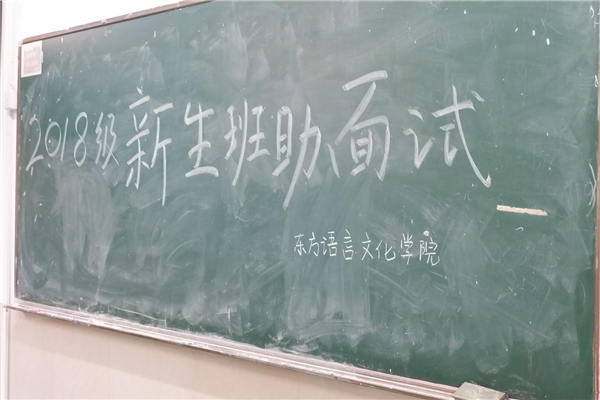 2018级新生班助面试
东方语言文化学院